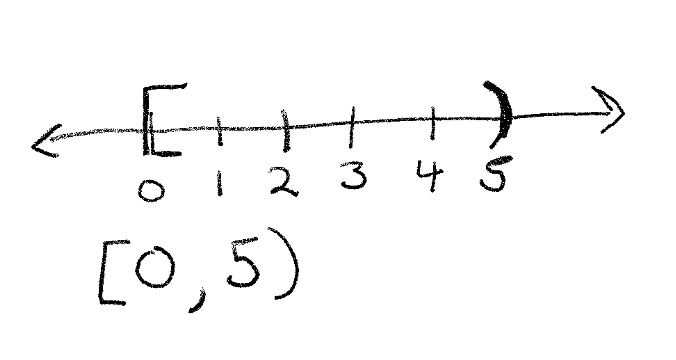 0 1 2 3 4 5
[0, 5)